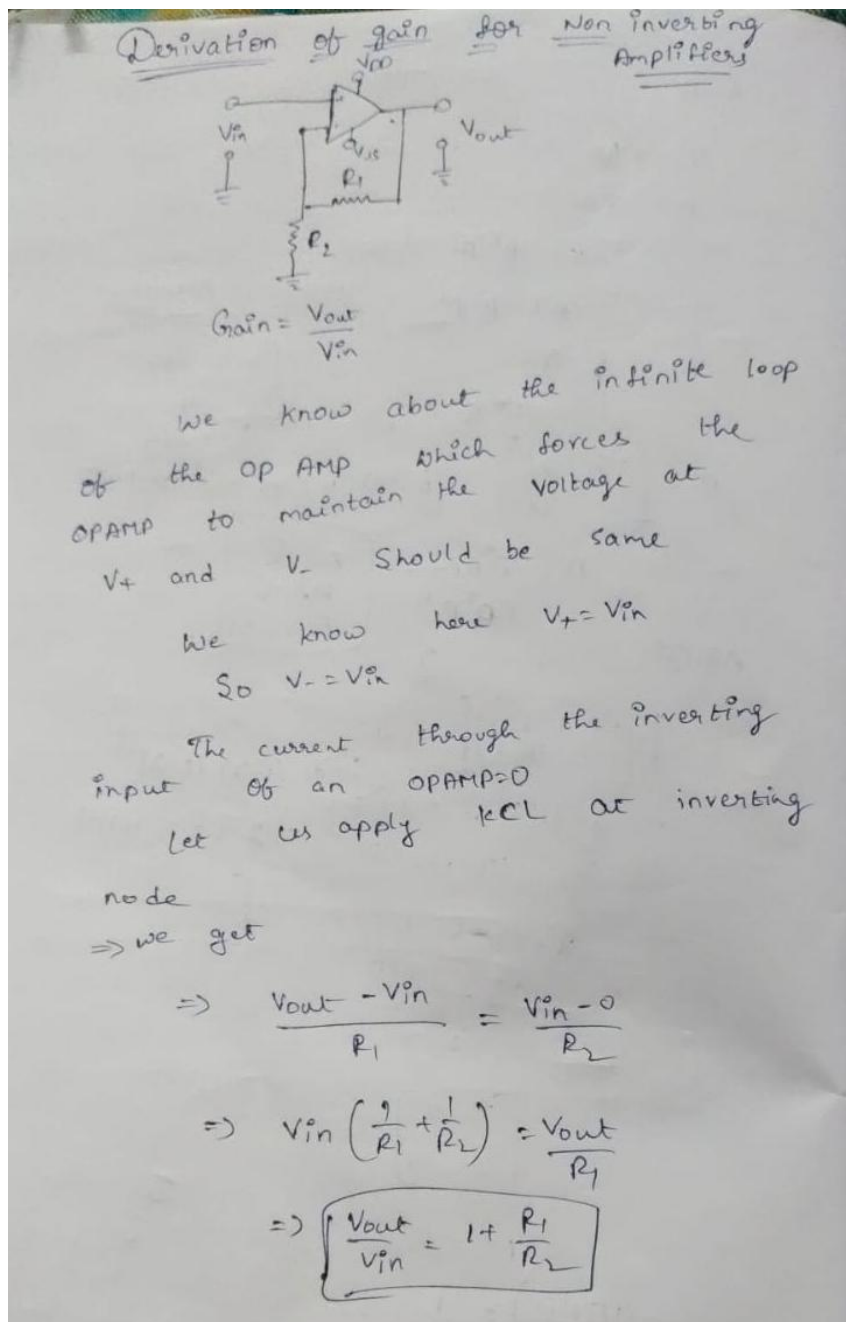 Derivation of gain for Non inverting
Amplifiers
VDD
Vin
Vss
Vout
R1
R2
Gain = Vout / Vin
We know about the infinite loop
of the OP AMP which forces the
OPAMP to maintain the voltage at
V+ and V- Should be same
We know here V+ = Vin
So V- = Vin
The current through the inverting
input of an OPAMP=0
Let us apply KCL at inverting
node
⇒ we get
⇒ Vout - Vin / R1 = Vin - 0 / R2
⇒ Vin (1/R1 + 1/R2) = Vout / R1
⇒ Vout / Vin = 1 + R1 / R2